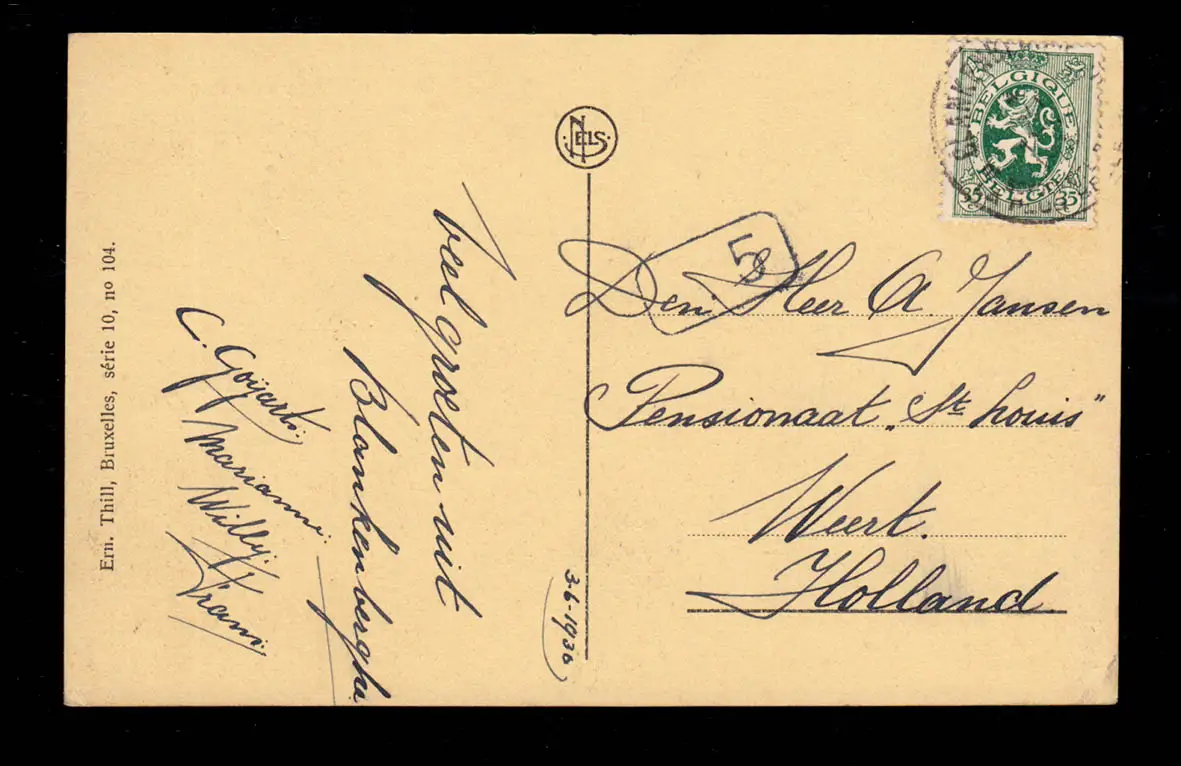 Ern. Thill, Bruxelles, série 10, nº 104.
NELS
veel groeten uit
Blankenberghe
C. Goijarts.
Marianne.
Willy.
3-6-1930
BELGIQUE
BELGIE
35 35
5
Den Heer A. Jansen
Pensionaat „St Louis"
Weert.
Holland.